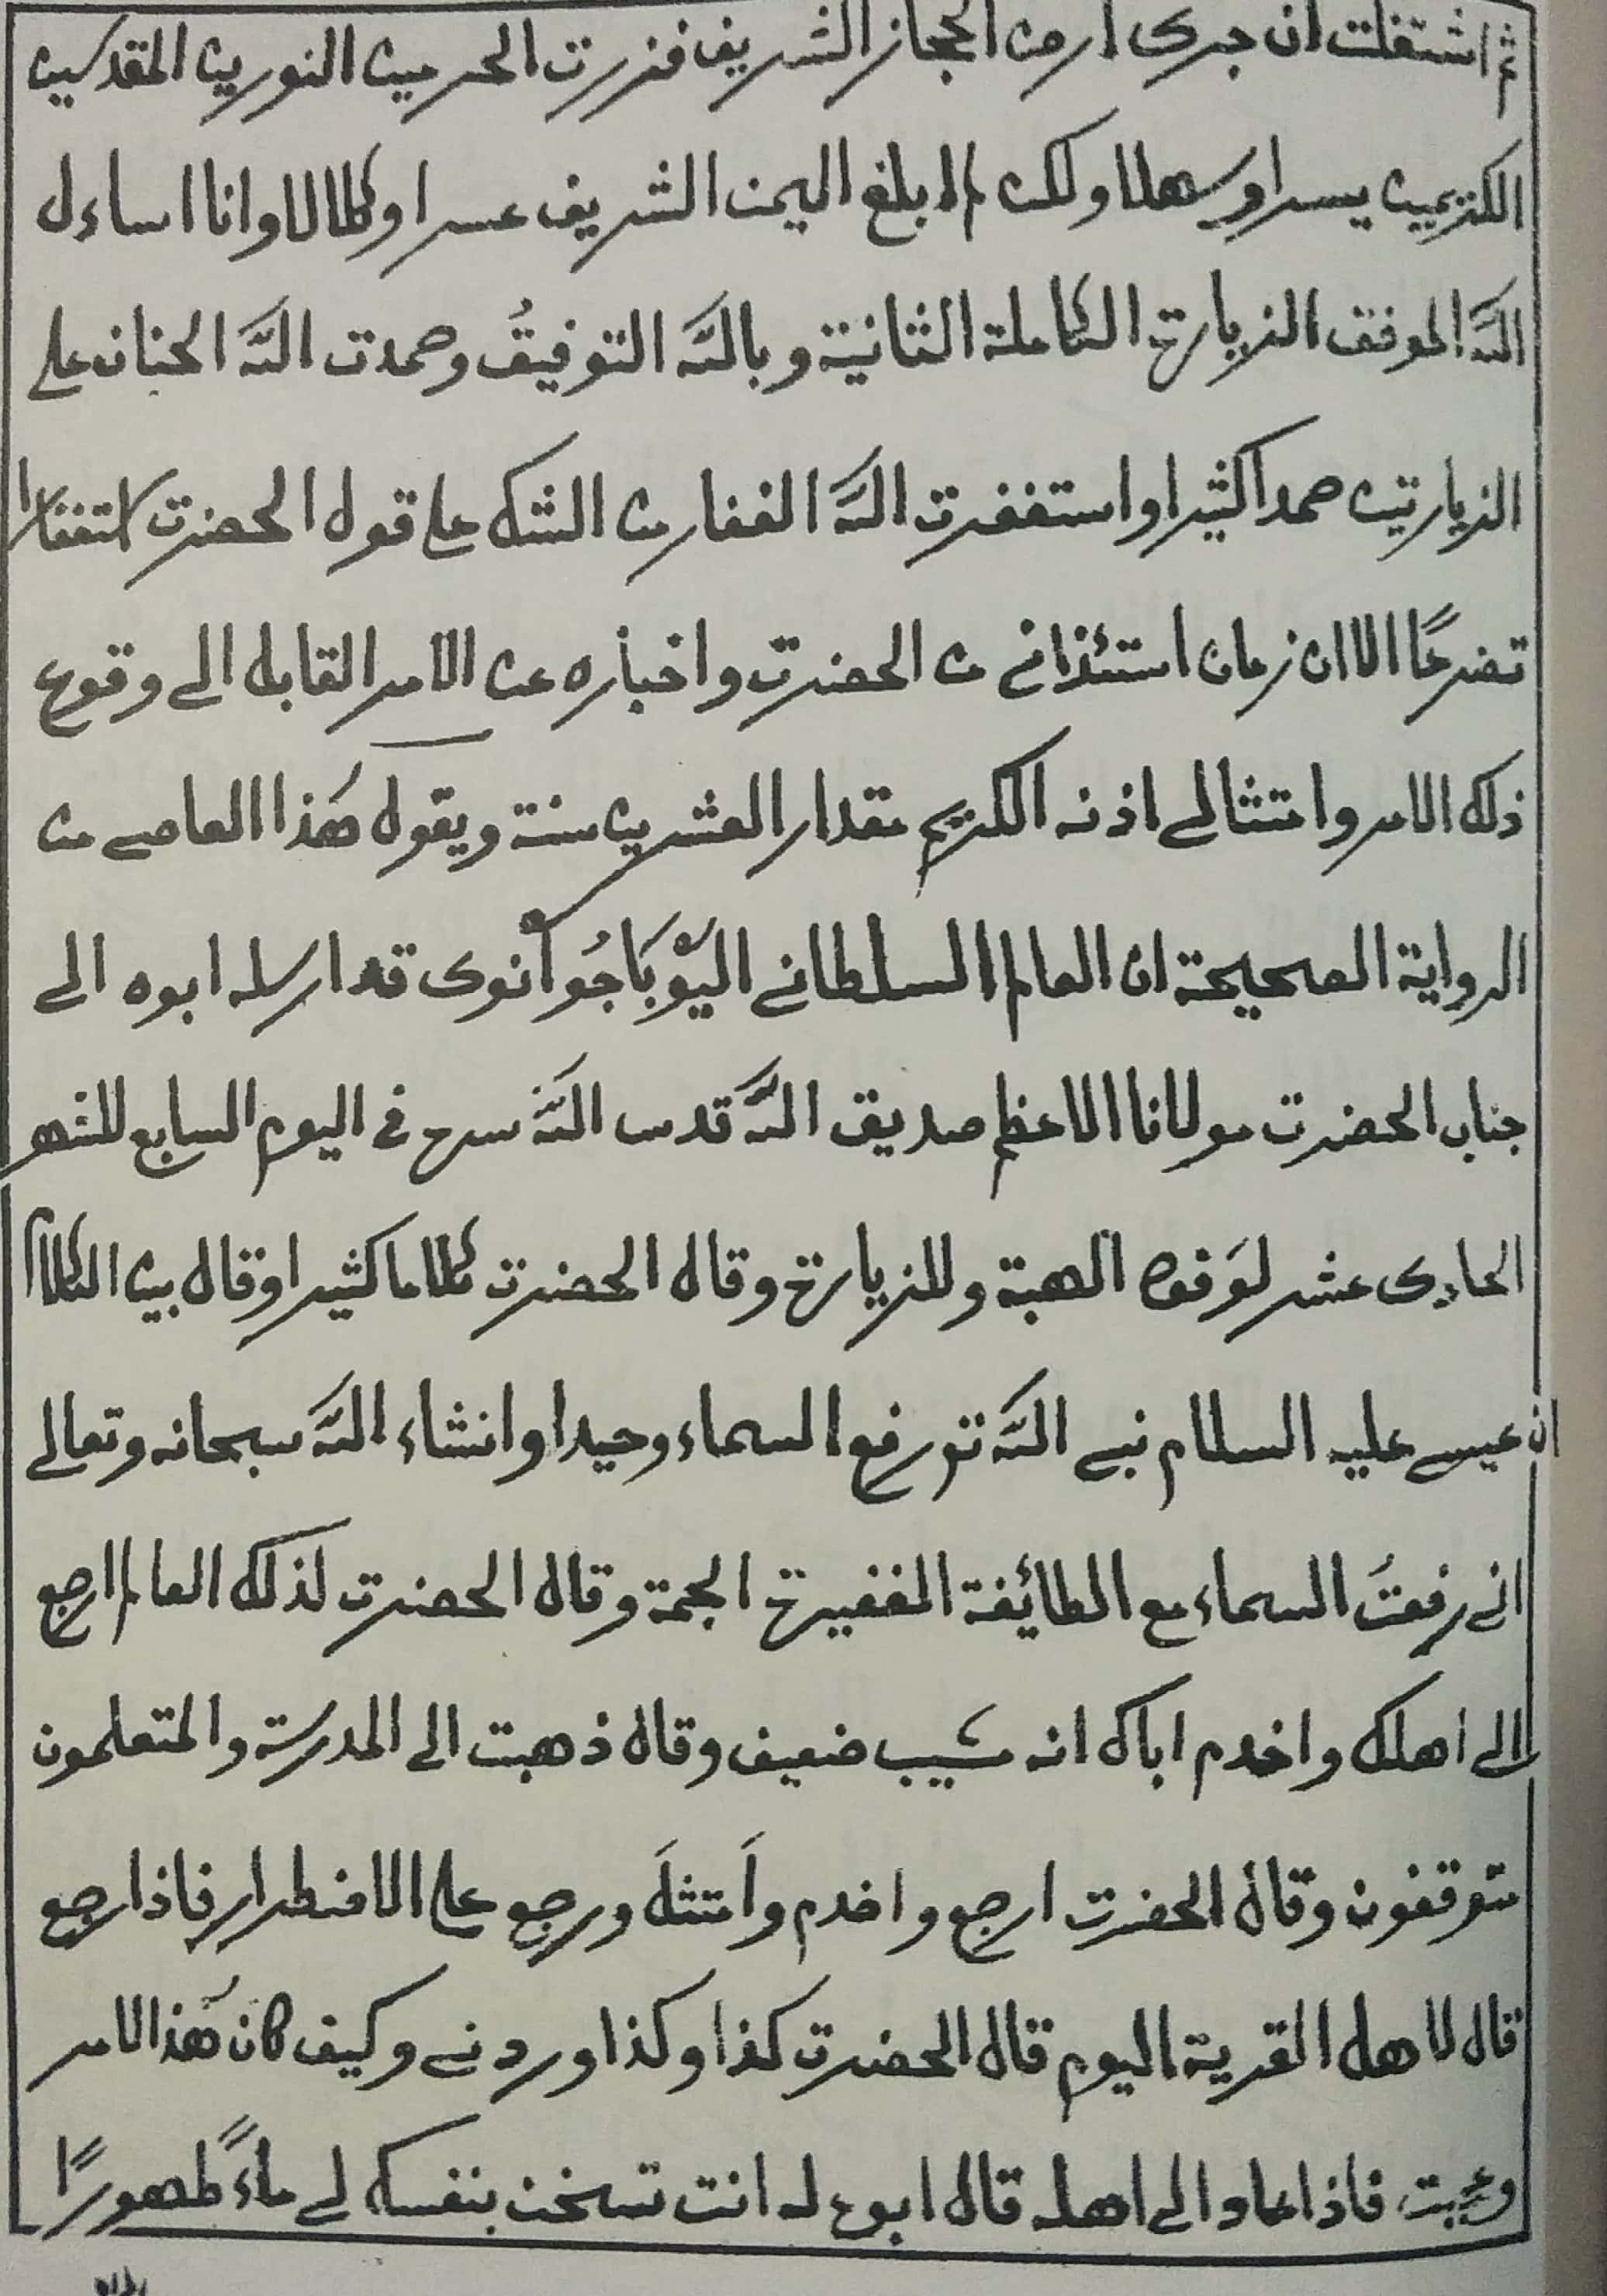 ثم اشتغلت ان جرى ارض الحجاز الشريف فزرت الحرمين النورين المقدسين
الكريمين يسرا وسهلا ولكن لم ابلغ اليمن الشريف عسرا وكلالا وانا اساءل
اللّٰه الموفق الزيارة الكاملة الثانية وباللّٰه التوفيقُ وحمدت اللّٰه الحنان على
الزيارتين حمدا كثيرا واستغفرت اللّٰه الغفار من الشك على قول الحضرت استغفارا
تضرعًا الا ان زمان استئذاني من الحضرت واخباره عن الامر القابل الى وقوع
ذلك الامر وامتثالى اذنه الكريم مقدار العشرين سنة ويقول هٰذا العاصى من
الرواية الصحيحة ان العالم السلطاني قد ارسله ابوه الى
جناب الحضرت مولانا الاعظم صديق اللّٰه قدس اللّٰه سره في اليوم السابع للشهر
الحادى عشر الهبة وللزيارة وقال الحضرت كلاما كثيرا وقال بين الكلام
ان عيسى عليه السلام نبي اللّٰه رفع السماء وحيدا وانشاء اللّٰه سبحانه وتعالى
انى رفعتُ السماء مع الطائفة الغفيرة الجمة وقال الحضرت لذلك العالم ارجع
الى اهلك واخدم اباك انه شيب ضعيف وقال ذهبت الى المدرسة والمتعلمون
متوقفون وقال الحضرت ارجع واخدم وامتثلَ ورجع على الاضطرار فاذا رجع
قال لاهل القرية اليوم قال الحضرت كذا وكذا وردنى وكيف كان هٰذا الامر
وعجبت فاذا عاد الى اهله قال ابوه له انت تسخن بنفسك لى ماءً طهورًا